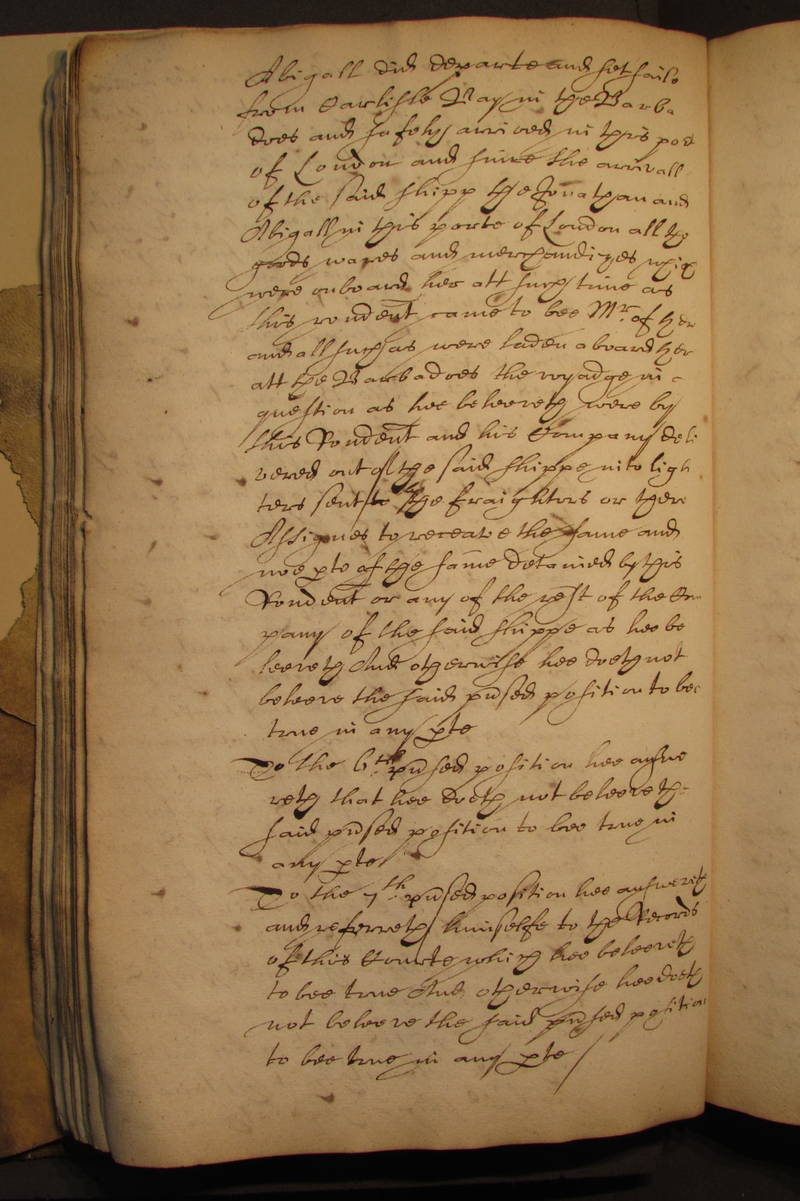 Abigall did departe and set saile
from Carlisle Bay in the Barba
does and safely arrived in this port
of London and since the arrivall
of the said shipp the Jonathan and
Abigall in this porte of London all the
goods wares and merchandizes which
were onboard her att such time as
this rondent came to bee Mr. of her
and all such as were laden aboard her
att the Barbadoes the voyadge in
question as hee beleeveth were by
this Rondent and his Company deli
vered out of the said shippe into ligh
ters sent by the fraighters or their
Assignes to receave the same and
noe pte of the same detained by this
Rondent or any of the rest of the Com
pany of the said shippe as hee be
leeveth And otherwise hee doeth not
beleeve the said pnsed position to bee
true in any pte
To the 6th pnsed position hee answe
reth that hee doeth not beleeve the
said pnsed position to bee true in
any pte
To the 7th pnsed position hee answereth
and referreth himselfe to the Records
of this Courte which hee beleeveth
to bee true And otherwise hee doeth
not beleeve the said pnsed position
to bee true in any pte /